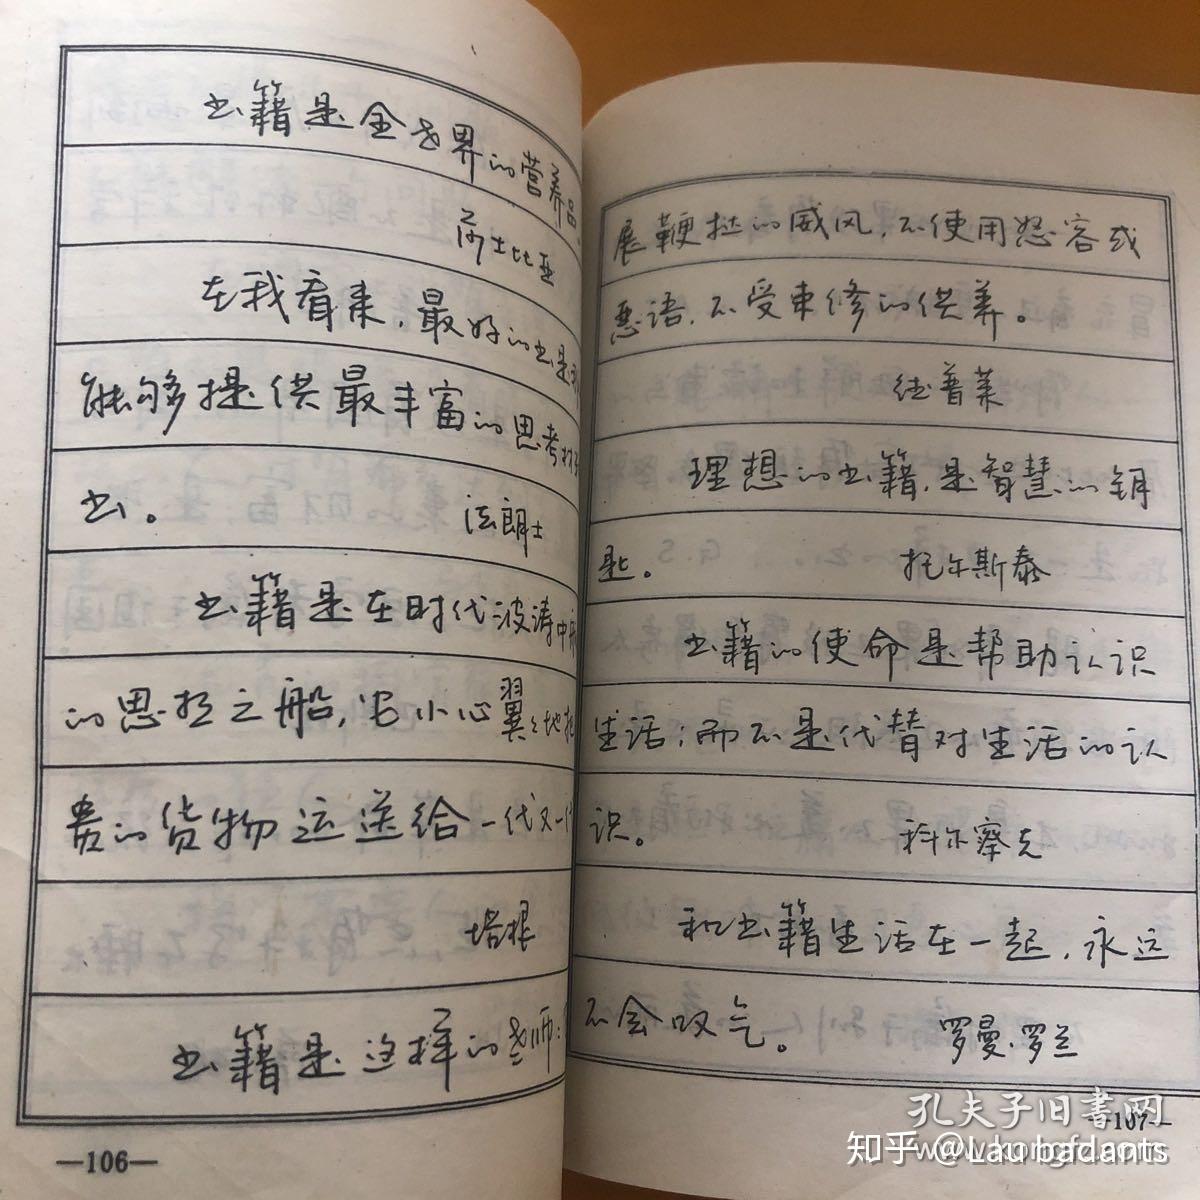 书籍是全世界的营养品。
莎士比亚
在我看来，最好的书是
能够提供最丰富的思考材
书。 法朗士
书籍是在时代波涛中
的思想之船，它小心翼々地
贵的货物运送给一代又一
培根
书籍是这样的老师：
—106—
展鞭挞的威风，不使用怒容或
恶语，不受束修的供养。
德普莱
理想的书籍，是智慧的钥
匙。 托尔斯泰
书籍的使命是帮助认识
生活；而不是代替对生活的认
识。 科尔察克
和书籍生活在一起，永远
不会叹气。 罗曼·罗兰
—107—
孔夫子旧书网
知乎 @Laubgfdants